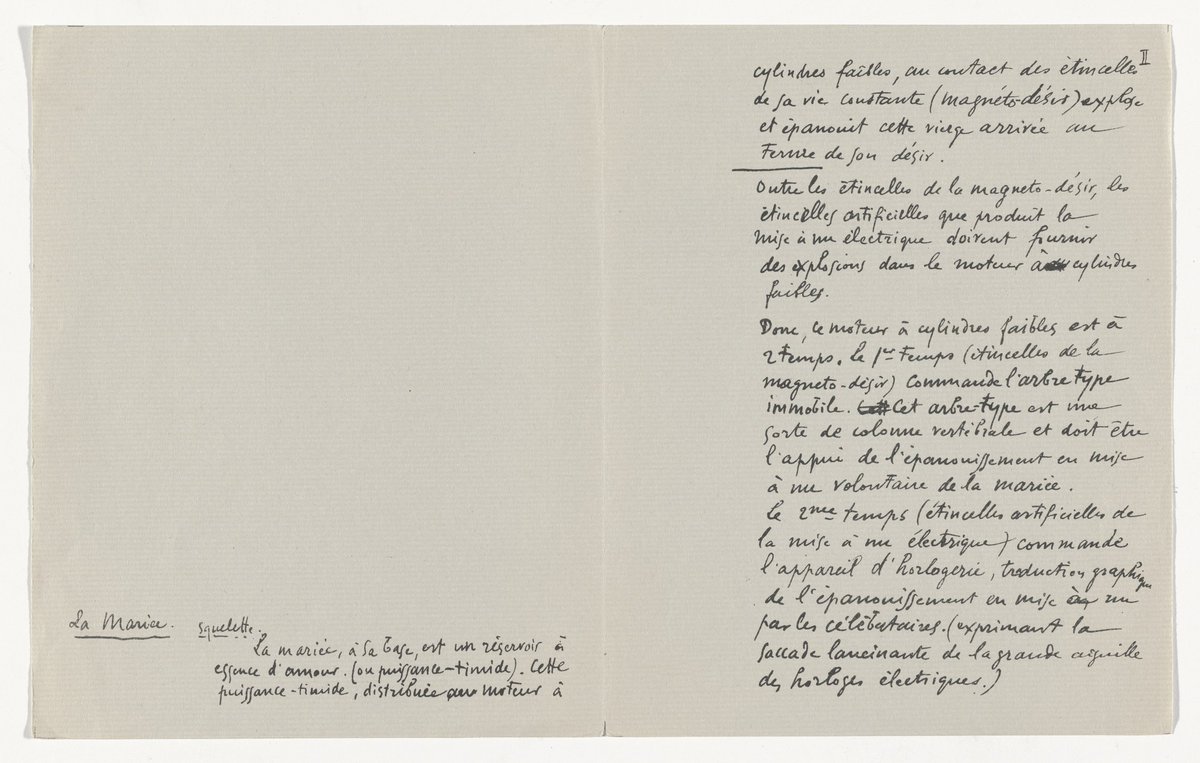 La Mariée.
squelette.
La mariée, à sa base, est un réservoir à
essence d'amour. (ou puissance-timide). Cette
puissance-timide, distribuée au moteur à
II
cylindres faibles, au contact des étincelles
de sa vie constante (magnéto-désir) explose
et épanouit cette vierge arrivée au
terme de son désir.
Outre les étincelles de la magneto-désir, les
étincelles artificielles que produit la
mise à nu électrique doivent fournir
des explosions dans le moteur à cylindres
faibles.
Donc, ce moteur à cylindres faibles est à
2 temps. Le 1er temps (étincelles de la
magneto-désir) commande l'arbre type
immobile. Cet arbre-type est une
sorte de colonne vertébrale et doit être
l'appui de l'épanouissement en mise
à nu volontaire de la mariée.
Le 2me temps (étincelles artificielles de
la mise à nu électrique) commande
l'appareil d'horlogerie, traduction graphique
de l'épanouissement en mise à nu
par les célibataires. (exprimant la
saccade lancinante de la grande aiguille
des horloges électriques.)